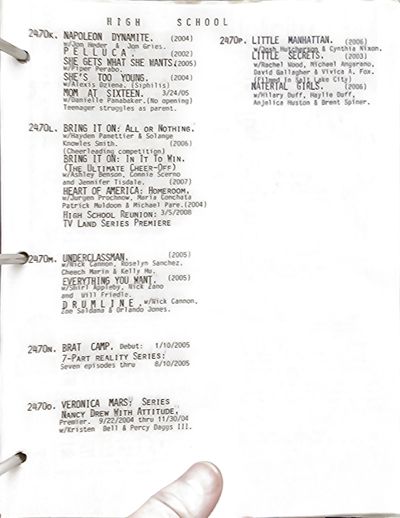 HIGH SCHOOL
2470K. NAPOLEON DYNAMITE. (2004)
w/Jon Heder & Jon Gries.
PELLUCA. (2002)
SHE GETS WHAT SHE WANTS.(2005)
w/Piper Perabo.
SHE'S TOO YOUNG. (2004)
w/Alexis Dziena. (Siphilis)
MOM AT SIXTEEN. 3/24/05
w/Danielle Panabaker.(No opening)
Teenager struggles as parent.
2470L. BRING IT ON: ALL OR NOTHING.
w/Hayden Panettier & Solange
Knowles Smith. (2006)
(Cheerleading competition)
BRING IT ON: IN IT TO WIN.
(THE ULTIMATE CHEER-OFF)
w/Ashley Benson, Connie Scerno
and Jennifer Tisdale. (2007)
HEART OF AMERICA: HOMEROOM.
w/Jurgen Prochnow, Maria Conchata
Patrick Muldoom & Michael Pare.(2004)
HIGH SCHOOL REUNION: 3/5/2008
TV LAND SERIES PREMIERE
2470M. UNDERCLASSMAN. (2005)
w/Nick Cannon, Roselyn Sanchez,
Cheech Marin & Kelly Hu.
EVERYTHING YOU WANT. (2005)
w/Shiri Appleby, Nick Zano
and Will Friedle.
DRUMLINE. w/Nick Cannon,
Zoe Saldana & Orlando Jones.
2470N. BRAT CAMP. Debut: 1/10/2005
7-PART REALITY SERIES:
Seven episodes thru 8/10/2005
2470O. VERONICA MARS: SERIES
NANCY DREW WITH ATTITUDE.
Premier. 9/22/2004 thru 11/30/04
w/Kristen Bell & Percy Daggs III.
2470P. LITTLE MANHATTAN. (2006)
w/Josh Hutcherson & Cynthia Nixon.
LITTLE SECRETS. (2003)
w/Rachel Wood, Michael Angarano,
David Gallagher & Vivica A. Fox.
(Filmed in Salt Lake City)
MATERIAL GIRLS. (2006)
w/Hilary Duff, Haylie Duff,
Anjelica Huston & Brent Spiner.